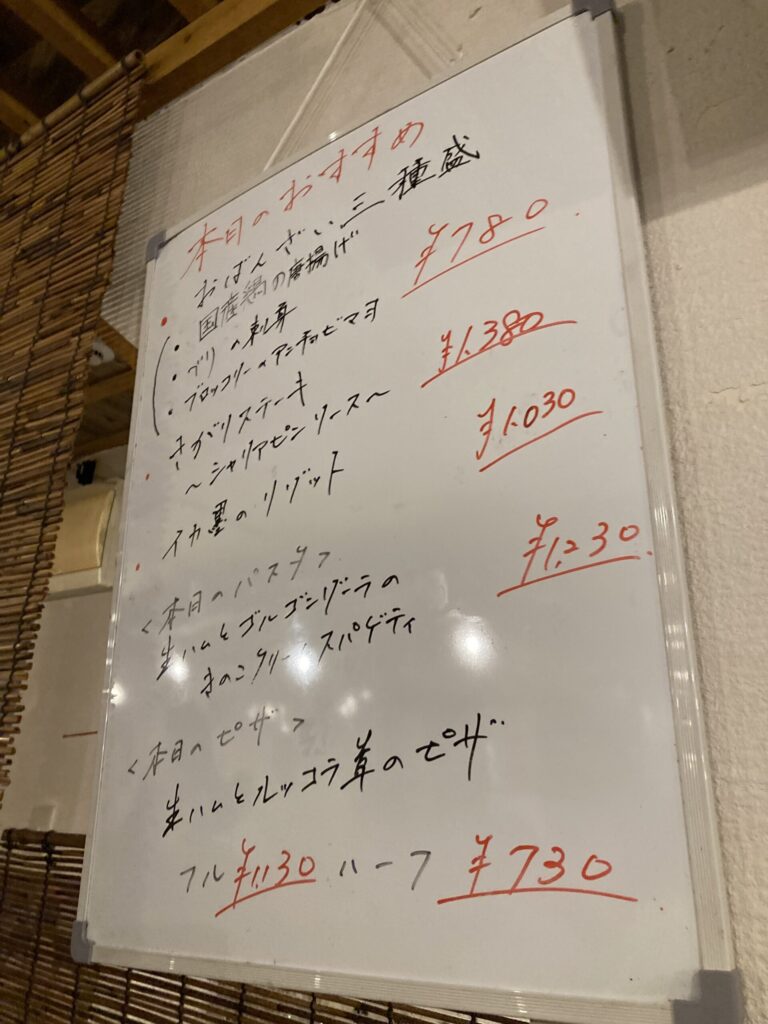 本日のおすすめ
・おばんざい三種盛 ¥780
・国産鶏の唐揚げ
・ブリの刺身
・ブロッコリーのアンチョビマヨ
・さがりステーキ ¥1.380
～シャリアピンソース～
・イカ墨のリゾット ¥1.030
<本日のパスタ>
生ハムとゴルゴンゾーラの ¥1,230
きのこクリームスパゲティ
<本日のピザ>
生ハムとルッコラ茸のピザ
フル ¥1,130 ハーフ ¥730